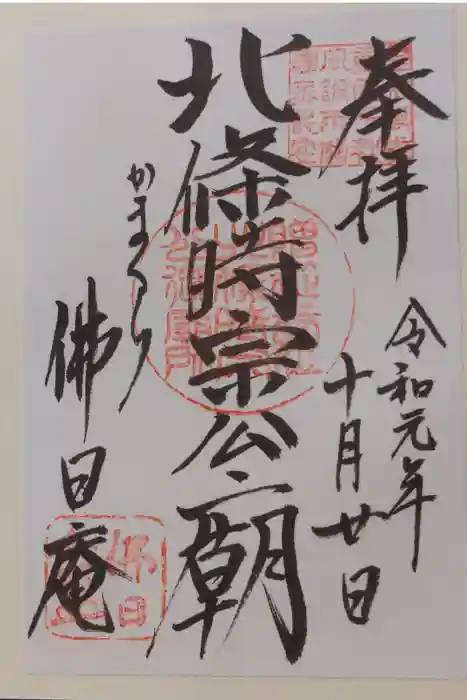 奉拝
令和元年
十月廿日
北條時宗公廟
かまくら
佛日庵
佛日